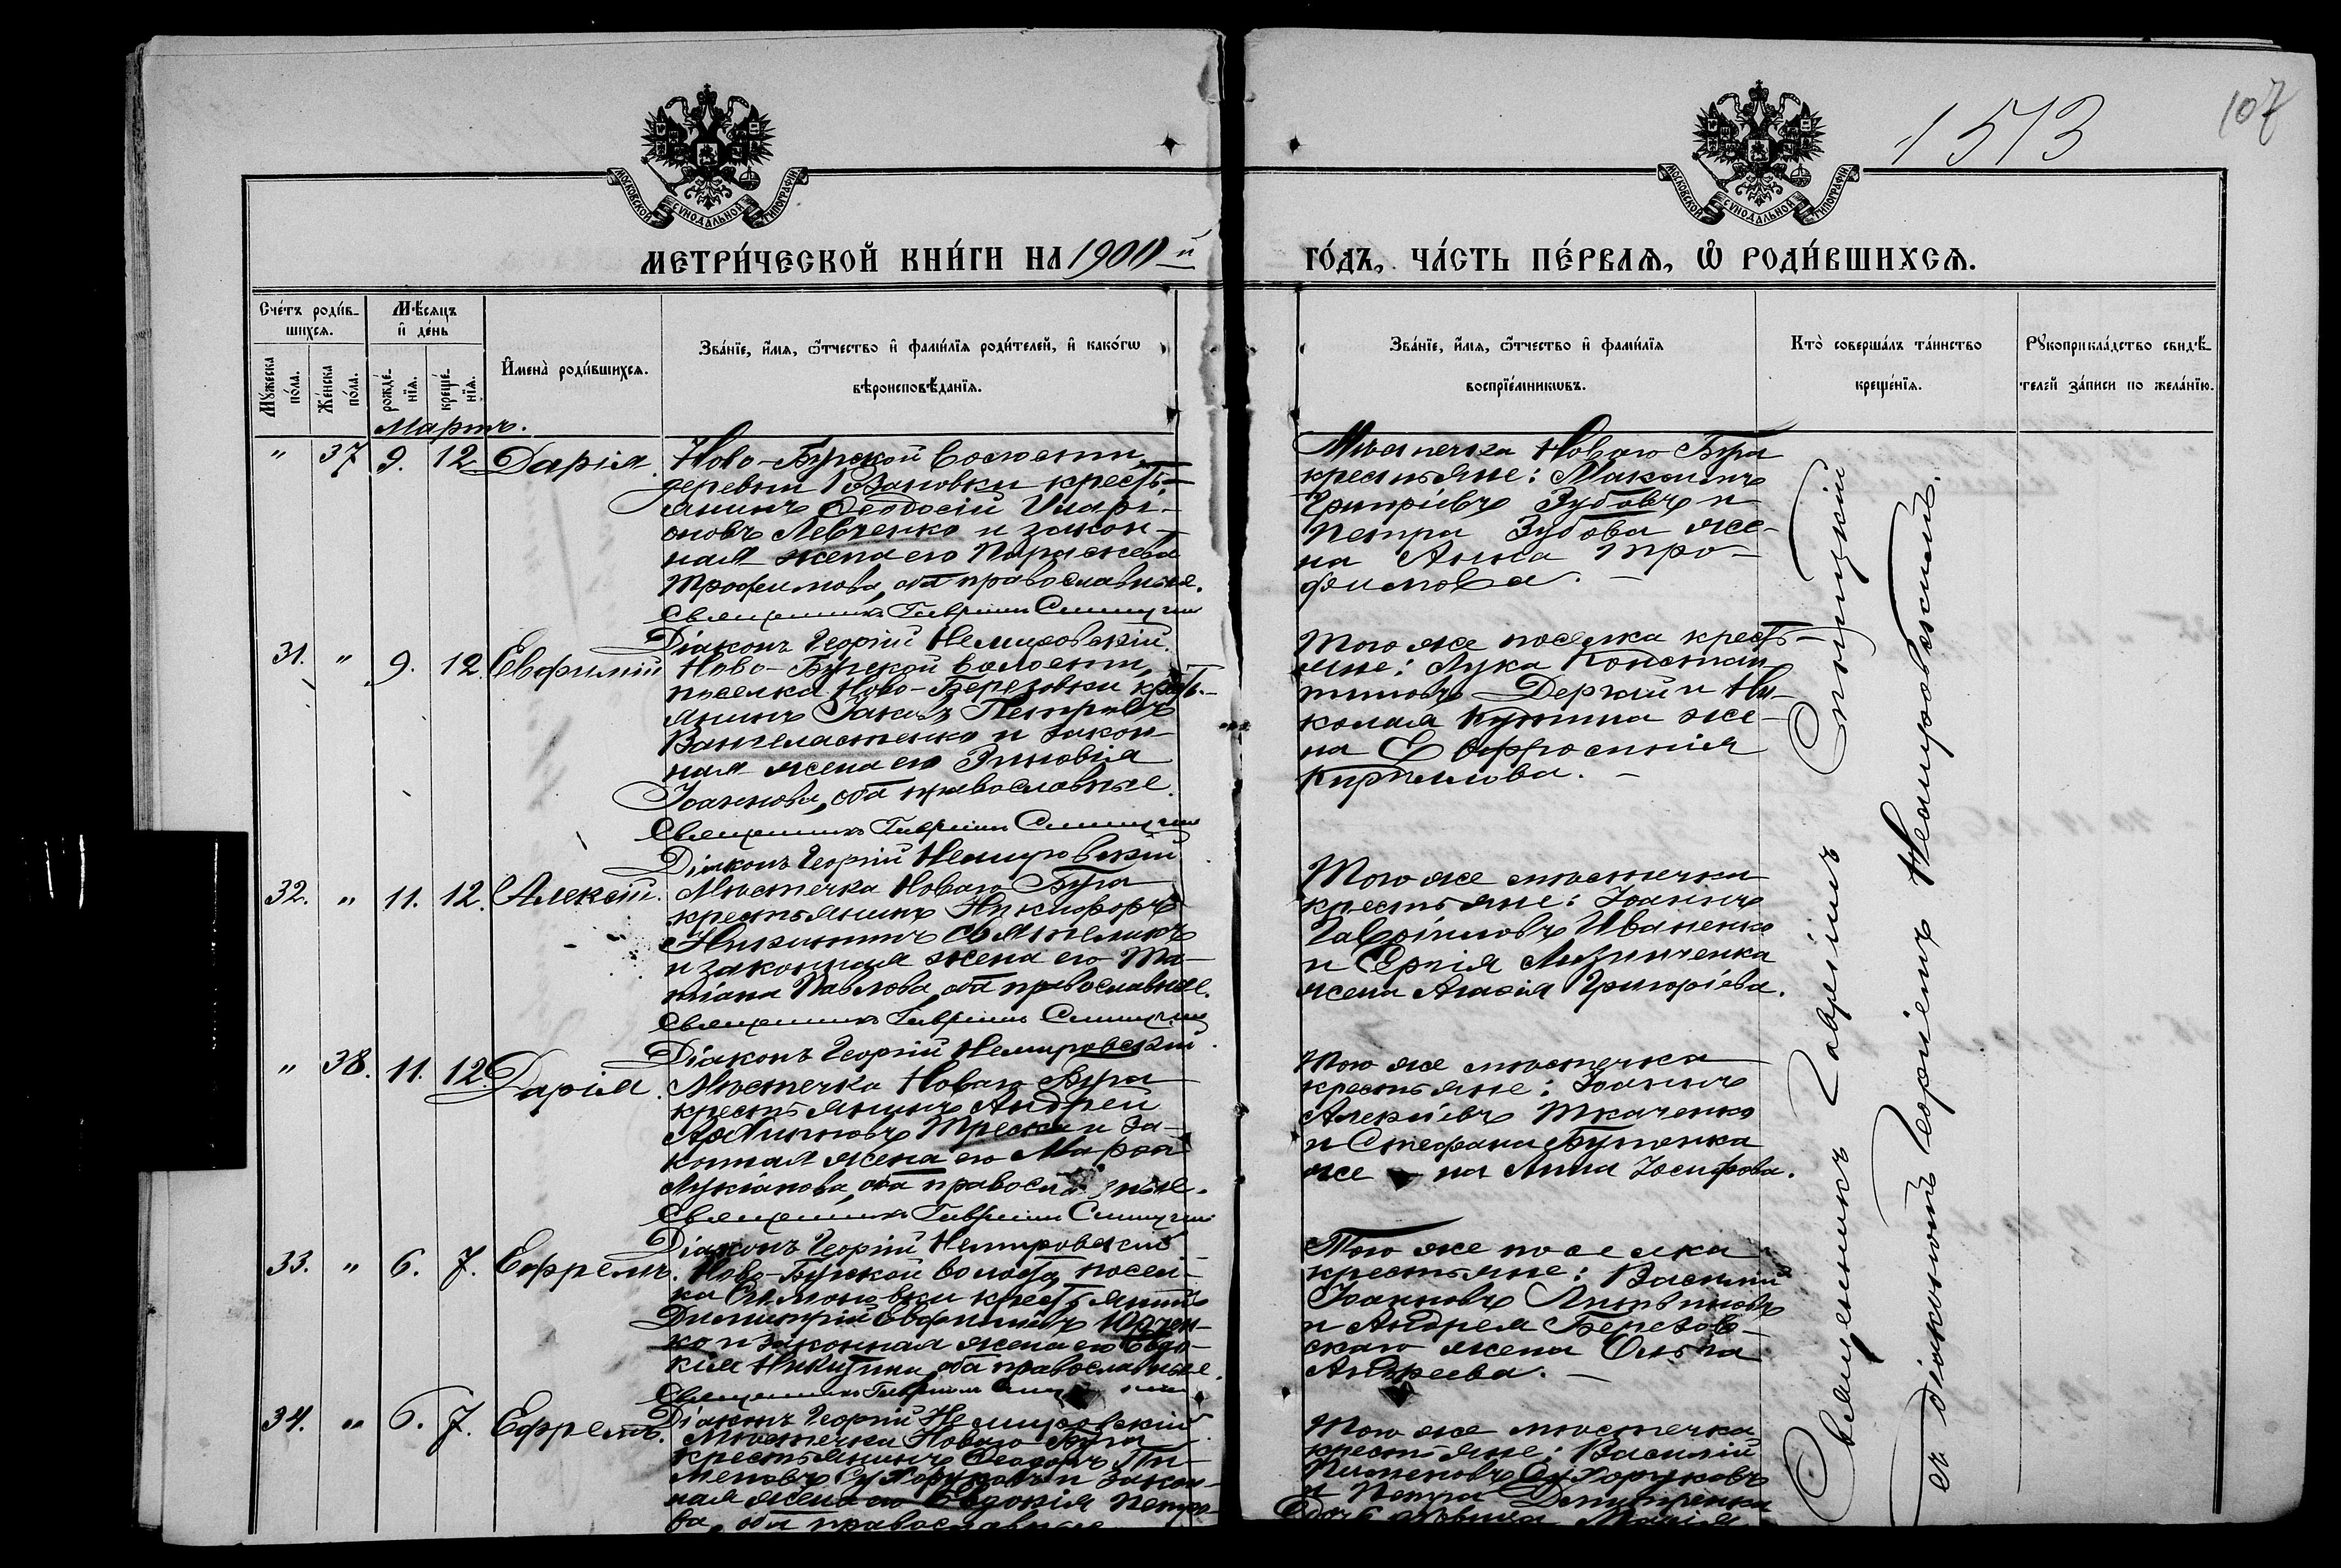 1513
107
МОСКОВСКОЙ СѴНОДАЛЬНОЙ ТИПОГРАФІИ
МОСКОВСКОЙ СѴНОДАЛЬНОЙ ТИПОГРАФІИ
МЕТРИ́ЧЕСКОЙ КНИ́ГИ НА 1900 й
ГО́ДЪ, ЧА́СТЬ ПЕ́РВАѦ, Ѡ РОДИ́ВШИХСѦ.
Сче́тъ роди́в-
шихся.
Мѣ́сяцъ
и де́нь
Му́жеска по́ла.
Же́нска по́ла.
рожде́-
нїя.
креще́-
нїя.
Имена̀ роди́вшихся.
Зва́нїе, и́мя, ѻ́тчество и фами́лїя роди́телей, и како́гѡ
вѣроисповѣ́данїя.
Зва́нїе, и́мя, ѻ́тчество и фами́лїя
воспрїе́мникѡвъ.
Кто̀ соверша́лъ та́инство
креще́нїя.
Рукоприкла́дство свидѣ́-
телей за́писи по жела́нїю.
Мартъ.
" 37 9. 12 Дарія.
Ново-Бугской волости,
деревни Розановки кресть-
янинъ Ѳеодосій Иларі-
оновъ Левченко и закон-
ная жена его Параскева
Трофимова, оба православные.
Священникъ Гавріилъ Спицкій
Діаконъ Георгій Немировскій.
Мѣстечка Новаго Буга
крестьяне: Максимъ
Григріевъ Зубовъ и
Петра Зубова же-
на Анна Тро-
фимова. —
31. " 9. 12. Евфимій
Ново-Бугской волости,
поселка Ново-Березовки крест.-
янинъ Іаковъ Петровъ
и закон-
ная жена его Зиновія
Іоаннова, оба православные.
Священникъ Гавріилъ Спицкій
Діаконъ Георгій Немировскій
Того же поселка кресть-
яне: Лука Констан-
тиновъ и Ни-
колая жe-
на Евфросинія
Кириллова. —
32. " 11. 12. Алексій.
Мѣстечка Новаго Буга
крестьянинъ Никифоръ
Никитинъ
и законная жена его Та-
тіана Павлова, оба православные.
Священникъ Гавріилъ Спицкій
Діаконъ Георгій Немировскій.
Того же мѣстечка
крестьяне: Іоаннъ
Гавріиловъ Иваненко
и Сергія
жена Агафія Григоріева.
" 38. 11. 12. Дарія.
Мѣстечка Новаго Буга
крестьянинъ Андрей
и за-
конная жена его Марѳа
Лукіанова, оба православные.
Священникъ Гавріилъ Спицкій
Діаконъ Георгій Немировскій
Того же мѣстечка
крестьяне: Іоаннъ
Алексіевъ Ткаченко
и Стефана Бутенка
же-на Анна Іосифова.
33. " 6. 7. Ефремъ.
Ново-Бугской волости посел-
ка крестьянинъ
Димитрій Евфиміевъ Юрчен-
ко и законная жена его Евдо-
кія Никитина, оба православные.
Священникъ Гавріилъ Спицкій
Діаконъ Георгій Немировскій.
Того же поселка
крестьяне: Василій
Іоанновъ Литвиновъ
и Андрея Березов-
скаго жена Ольга
Андреева. —
34. " 6. 7. Ефремъ.
Мѣстечка Новаго Буга
крестьянинъ Ѳеодоръ Пи-
меновъ Сухоруковъ и закон-
ная жена его Евдокія Петро-
ва, оба православные
Того же мѣстечка
крестьяне: Василій
Пименовъ Сухоруковъ
и Петра Демитренка
Марія
Священникъ Гавріилъ Спицкій
съ діакономъ Георгіемъ Немировскимъ.